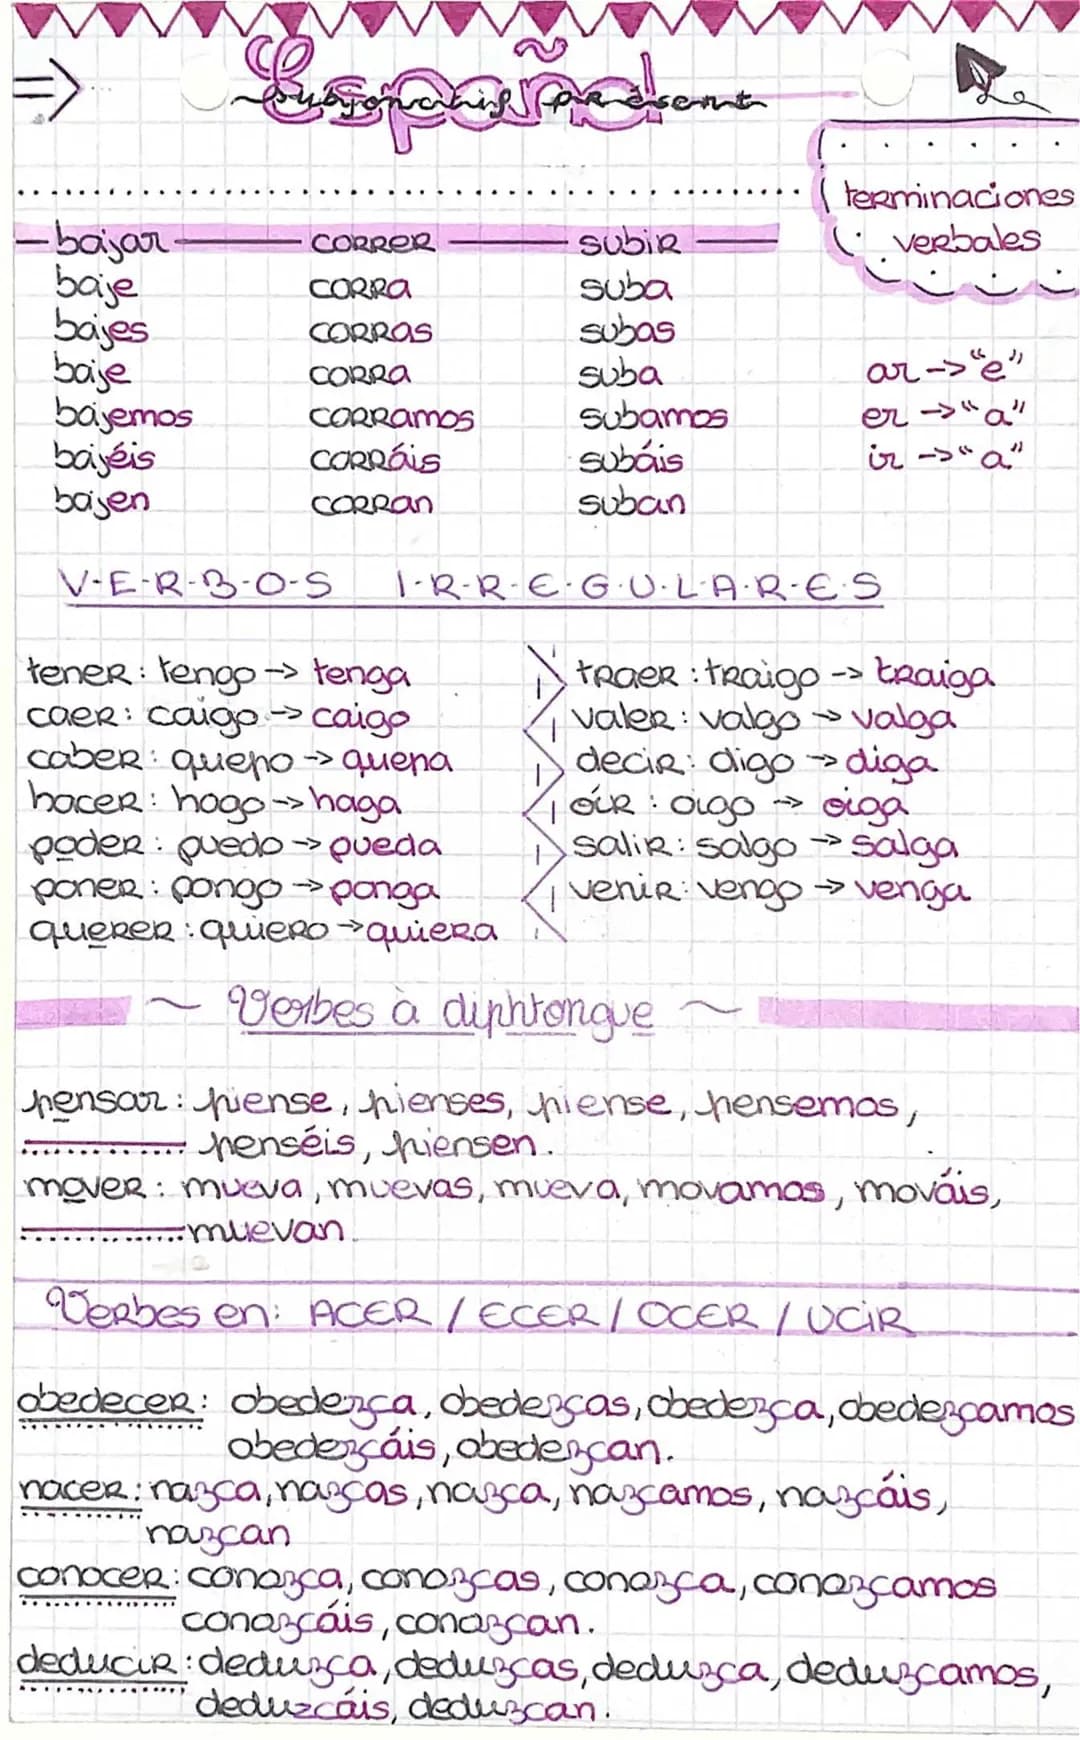 => Español
Subjonctif présent
terminaciones
verbales
- bajar - correr - subir -
baje corra suba
bajes corras subas
baje corra suba
bajemos corramos subamos
bajéis corráis subáis
bajen corran suban
ar -> "e"
er -> "a"
ir -> "a"
V-E-R-B-O-S I-R-R-E-G-U-L-A-R-E-S
tener: tengo -> tenga
caer: caigo -> caigo
caber: quepo -> quepa
hacer: hago -> haga
poder: puedo -> pueda
poner: pongo -> ponga
querer: quiero -> quiera
traer: traigo -> traiga
valer: valgo -> valga
decir: digo -> diga
oír: oigo -> oiga
salir: salgo -> salga
venir: vengo -> venga
~ Verbes à diphtongue ~
pensar: piense, pienses, piense, pensemos,
penséis, piensen.
mover: mueva, muevas, mueva, movamos, mováis,
muevan.
Verbes en: ACER / ECER / OCER / UCIR
obedecer: obedezca, obedezcas, obedezca, obedezcamos
obedezcáis, obedezcan.
nacer: nazca, nazcas, nazca, nazcamos, nazcáis,
nazcan
conocer: conozca, conozcas, conozca, conozcamos
conozcáis, conozcan.
deducir: deduzca, deduzcas, deduzca, deduzcamos,
deduzcáis, deduzcan.